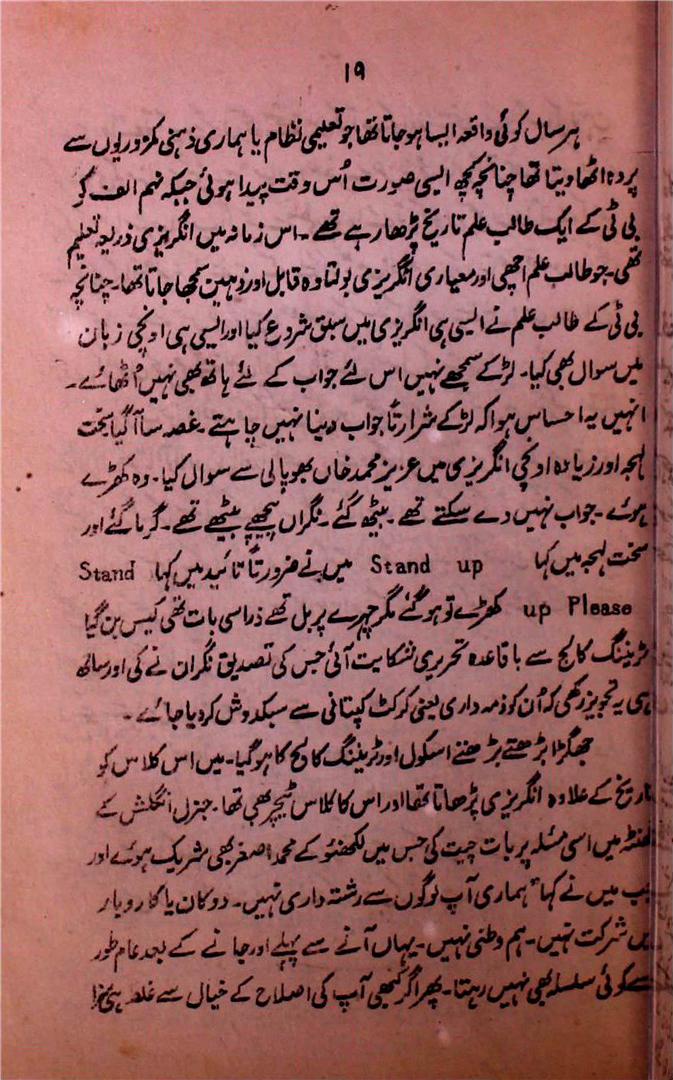 ۱۹
ہر سال کوئی واقعہ ایسا ہو جاتا تھا جو تعلیمی نظام یا ہماری ذہنی کمزوریوں سے
پردہ اٹھا دیتا تھا چنانچہ کچھ ایسی صورت اُس وقت پیدا ہوئی جبکہ نہم الف کو
بی ٹی کے ایک طالب علم تاریخ پڑھا رہے تھے ۔ اس زمانہ میں انگریزی ذریعہ تعلیم
تھی ۔ جو طالب علم اچھی اور معیاری انگریزی بولتا وہ قابل اور ذہین سمجھا جاتا تھا ۔ چنانچہ
بی ٹی کے طالب علم نے ایسی ہی انگریزی میں سبق شروع کیا اور ایسی ہی اونچی زبان
میں سوال بھی کیا ۔ لڑکے سمجھے نہیں اس لئے جواب کے لئے ہاتھ بھی نہیں اُٹھائے ۔
انہیں یہ احساس ہوا کہ لڑکے شرارتاً جواب دینا نہیں چاہتے ۔ غصہ سا آ گیا سخت
لہجہ اور زیادہ اونچی انگریزی میں عزیز محمد خاں بھوپالی سے سوال کیا ۔ وہ کھڑے
ہوئے ۔ جواب نہیں دے سکتے تھے ۔ بیٹھ گئے ۔ نگراں پیچھے بیٹھے تھے ۔ گرما گئے اور
سخت لہجہ میں کہا Stand up میں نے ضرورتاً تائید میں کہا Stand
up Please کھڑے تو ہو گئے مگر چہرے پر بل تھے ذرا سی بات تھی کیس بن گیا
ٹریننگ کالج سے باقاعدہ تحریری شکایت آئی جس کی تصدیق نگران نے کی اور ساتھ
ہی یہ تجویز رکھی کہ اُن کو ذمہ داری یعنی کرکٹ کپتانی سے سبکدوش کر دیا جائے ۔
جھگڑا بڑھتے بڑھتے اسکول اور ٹریننگ کالج کا ہو گیا ۔ میں اس کلاس کو
تاریخ کے علاوہ انگریزی پڑھاتا تھا اور اس کا کلاس ٹیچر بھی تھا ۔ جنرل انگلش کے
گھنٹہ میں اسی مسئلہ پر بات چیت کی جس میں لکھنؤ کے محمد اصغر بھی شریک ہوئے اور
جب میں نے کہا "ہماری آپ لوگوں سے رشتہ داری نہیں ۔ دوکان یا کاروبار
میں شرکت نہیں ۔ ہم وطنی نہیں ۔ یہاں آنے سے پہلے اور جانے کے بعد عام طور
سے کوئی سلسلہ بھی نہیں رہتا ۔ پھر اگر کبھی آپ کی اصلاح کے خیال سے غلط